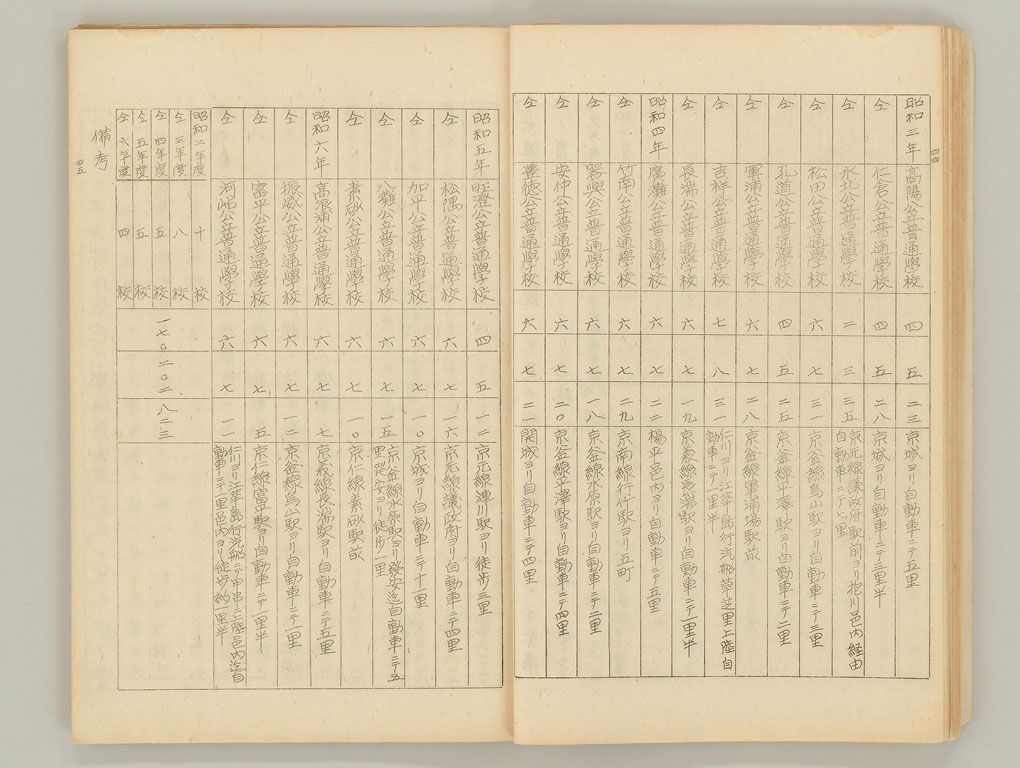 四四
昭和三年 高陽公立普通學校 四 五 二三 京城ヨリ自動車ニテ五里
仝 仁倉公立普通學校 四 五 二八 京城ヨリ自動車ニテ三里半
仝 永北公立普通學校 二 三 三五 京元線議政府駅前ヨリ抱川邑内経由
自動車ニテ七里
仝 松田公立普通學校 六 七 三一 京釜線烏山駅ヨリ自動車ニテ三里
仝 孔道公立普通學校 四 五 二五 京釜線平澤駅ヨリ自動車ニテ二里
仝 軍浦公立普通學校 六 七 二八 京釜線軍浦場駅前
仝 吉祥公立普通學校 七 八 三一 仁川ヨリ江華島行汽船草芝里上陸自
動車ニテ一里半
仝 長湍公立普通學校 六 七 一九 京義線長湍駅ヨリ自動車ニテ一里半
昭和四年 廣灘公立普通學校 六 七 二二 楊平邑内ヨリ自動車ニテ五里
仝 竹南公立普通學校 六 七 二九 京南線行竹駅ヨリ五町
仝 公立普通學校 六 七 一八 京釜線水原駅ヨリ自動車ニテ二里
仝 安仲公立普通學校 六 七 二〇 京釜線平澤駅ヨリ自動車ニテ四里
仝 豊德公立普通學校 六 七 二一 開城ヨリ自動車ニテ四里
昭和五年 公立普通學校 四 五 一二 京元線漣川駅ヨリ徒歩三里
仝 松隅公立普通學校 六 七 一六 京元線議政府ヨリ自動車ニテ四里
仝 加平公立普通學校 六 七 一〇 京城ヨリ自動車ニテ十一里
仝 灘公立普通學校 六 七 一五 京釜線水原駅ヨリ發安迄自動車ニテ五
里發安ヨリ徒歩一里
仝 素砂公立普通學校 六 七 一〇 京仁線素砂駅前
昭和六年 高浪浦公立普通學校 六 七 七 京義線長湍駅ヨリ自動車ニテ五里
仝 振威公立普通學校 六 七 一二 京釜線烏山駅ヨリ自動車ニテ一里
仝 富平公立普通學校 六 七 五 京仁線富平駅ヨリ自動車ニテ一里半
仝 河岾公立普通學校 六 七 一一 仁川ヨリ江華島行汽船ニテ甲串ニ上陸邑内迄自
動車ニテ一里邑内ヨリ徒歩約一里半
一七〇 二〇二 八二三
昭和二年度 十校
仝三年度 八校
仝四年度 五校
仝五年度 五校
仝六年度 四校
備考
四五